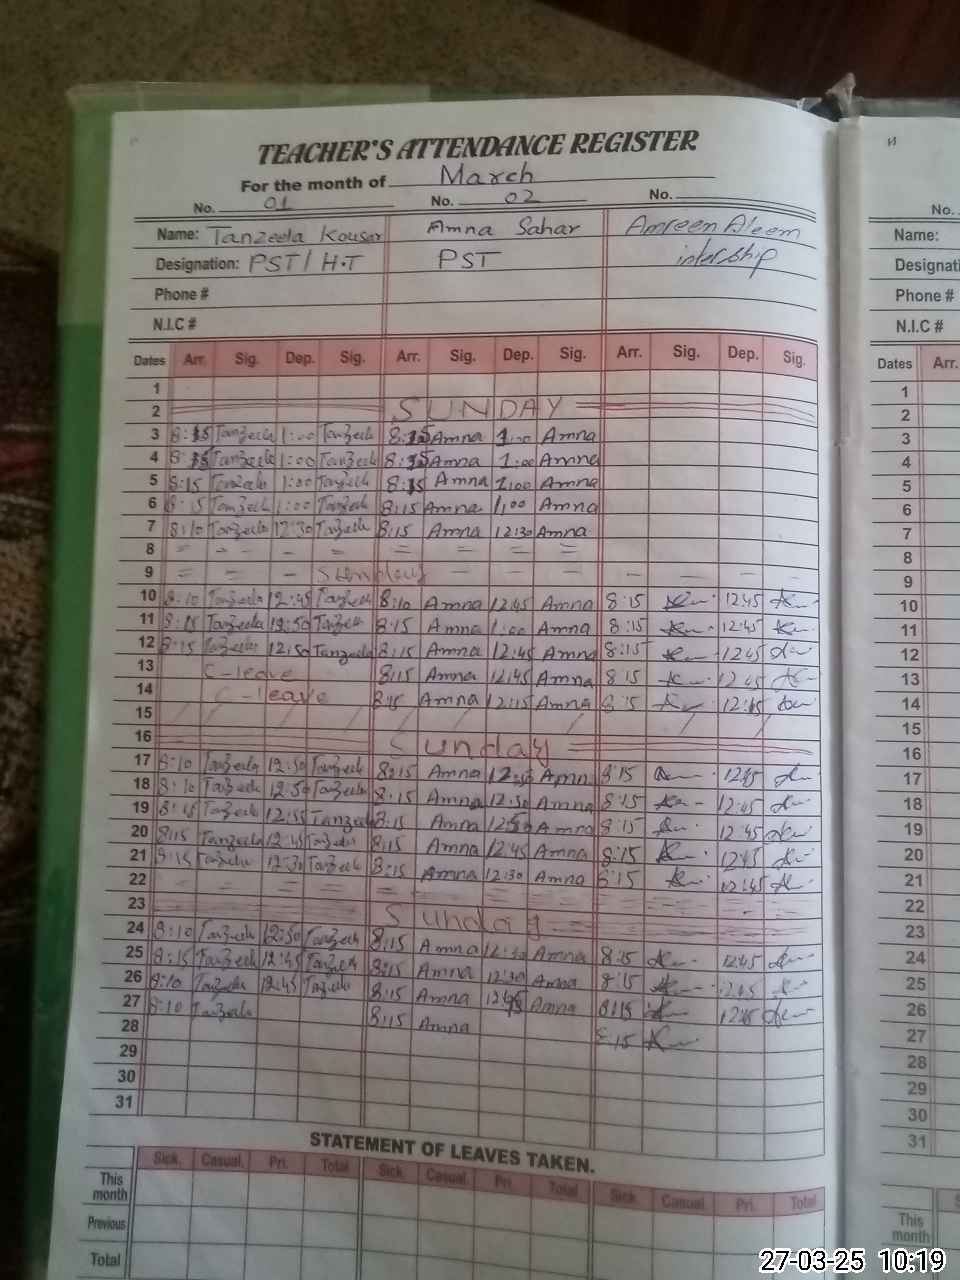 TEACHER'S ATTENDANCE REGISTER
For the month of March
No. 01 No. 02 No.
Name: Tanzeela Kousar Amna Sahar Amreen Aleem
Designation: PST/H.T PST intership
Phone #
N.I.C #
Dates Arr. Sig. Dep. Sig. Arr. Sig. Dep. Sig. Arr. Sig. Dep. Sig.
1
2 SUNDAY
3 8:15 Tanzeela 1:00 Tanzeela 8:15 Amna 1:00 Amna
4 8:15 Tanzeela 1:00 Tanzeela 8:15 Amna 1:00 Amna
5 8:15 Tanzeela 1:00 Tanzeela 8:15 Amna 1:00 Amna
6 8:15 Tanzeela 1:00 Tanzeela 8:15 Amna 1:00 Amna
7 8:10 Tanzeela 12:30 Tanzeela 8:15 Amna 12:30 Amna
8
9 Sunday
10 8:10 Tanzeela 12:45 Tanzeela 8:10 Amna 12:45 Amna 8:15 12:45
11 8:15 Tanzeela 12:50 Tanzeela 8:15 Amna 1:00 Amna 8:15 12:45
12 8:15 Tanzeela 12:50 Tanzeela 8:15 Amna 12:45 Amna 8:15 12:45
13 C-leave 8:15 Amna 12:45 Amna 8:15 12:45
14 C-leave 8:15 Amna 12:15 Amna 8:15 12:45
15
16 Sunday
17 8:10 Tanzeela 12:50 Tanzeela 8:15 Amna Amna 8:15 12:45
18 8:10 Tanzeela 12:50 Tanzeela 8:15 Amna 12:50 Amna 8:15 12:45
19 8:15 Tanzeela 12:55 Tanzeela 8:15 Amna 12:50 Amna 8:15 12:45
20 8:15 Tanzeela 12:45 Tanzeela 8:15 Amna 12:45 Amna 8:15 12:45
21 8:15 Tanzeela 12:30 Tanzeela 8:15 Amna 12:30 Amna 8:15 12:45
22
23 Sunday
24 8:10 Tanzeela 12:30 Tanzeela 8:15 Amna 12:30 Amna 8:15 12:45
25 8:15 Tanzeela 12:45 Tanzeela 8:15 Amna 12:30 Amna 8:15 12:45
26 8:10 Tanzeela 12:45 Tanzeela 8:15 Amna 12:45 Amna 8:15 12:45
27 8:10 Tanzeela 8:15 Amna 8:15
28
29
30
31
STATEMENT OF LEAVES TAKEN.
Sick. Casual. Pri. Total Sick. Casual. Pri. Total Sick. Casual. Pri. Total
This month
Previous
Total
No.
Name:
Designati
Phone #
N.I.C #
Dates Arr.
1
2
3
4
5
6
7
8
9
10
11
12
13
14
15
16
17
18
19
20
21
22
23
24
25
26
27
28
29
30
31
This month
Previous
Total
27-03-25 10:19